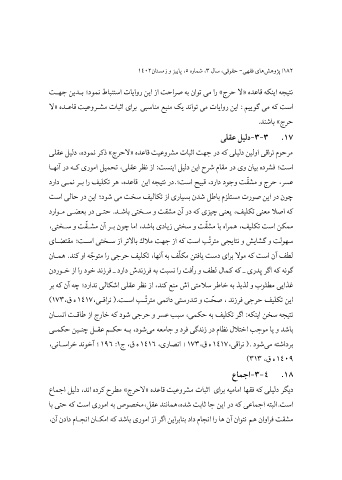 ۱۸۲/ پژوهش‌های فقهی- حقوقی، سال ۳، شماره ۵، پاییز و زمستان۱۴۰۲
نتیجه اینکه قاعده «لا حرج» را می توان به صراحت از این روایات استنباط نمود؛ بدین جهت
است که می گوییم : این روایات می تواند یک منبع مناسبی برای اثبات مشروعیت قاعده «لا
حرج» باشند.
۱۷. ۳-۳-دلیل عقلی
مرحوم نراقی اولین دلیلی که در جهت اثبات مشروعیت قاعده «لاحرج» ذکر نموده، دلیل عقلی
است؛ فشرده بیان وی در مقام شرح این دلیل اینست: از نظر عقلی، تحمیل اموری که در آنها
عسر، حرج و مشقّت وجود دارد، قبیح است؛.در نتیجه این قاعده، هر تکلیف را بر نمی دارد
چون در این صورت مستلزم باطل شدن بسیاری از تکالیف سخت می شود؛ این در حالی است
که اصلا معنی تکلیف، یعنی چیزی که در آن مشقت و سختی باشد. حتی در بعضی موارد
ممکن است تکلیف، همراه با مشقّت و سختی زیادی باشد، اما چون بر آن مشقّت و سختی،
سهولت و گشایش و نتایجی مترتّب است که از جهت ملاک بالاتر از سختی است؛ مقتضای
لطف آن است که مولا برای دست یافتن مکلّف به آنها، تکلیف حرجی را متوجّه او کند. همان
گونه که اگر پدری ـ که کمال لطف و رأفت را نسبت به فرزندش دارد ـ فرزند خود را از خوردن
غذایی مطلوب و لذیذ به خاطر سلامتی اش منع کند، از نظر عقلی اشکالی ندارد؛ چه آن که بر
این تکلیف حرجی فرزند ، صحّت و تندرستی دائمی مترتّب است.( نراقی،۱۴۱۷ه ق،۱۷۳)
نتیجه سخن اینکه: اگر تکلیف به حکمی، سبب عسر و حرجی شود که خارج از طاقت انسان
باشد و یا موجب اختلال نظام در زندگی فرد و جامعه می‌شود، به حکم عقل چنین حکمی
برداشته می‌شود .( نراقی،۱۴۱۷ه ق،۱۷۳؛ انصاری، ۱۴۱۶ه ق، ج۱: ۱۹۶ ؛ آخوند خراسانی،
۱۴۰۹ه ق، ۳۱۳)
۱۸. ۳-۴-اجماع
دیگر دلیلی که فقها امامیه برای اثبات مشروعیت قاعده «لاحرج» مطرح کرده اند، دلیل اجماع
است.البته اجماعی که در این جا ثابت شده،همانند عقل،مخصوص به اموری است که حتی با
مشقت فراوان هم نتوان آن ها را انجام داد بنابراین اگر از اموری باشد که امکان انجام دادن آن،